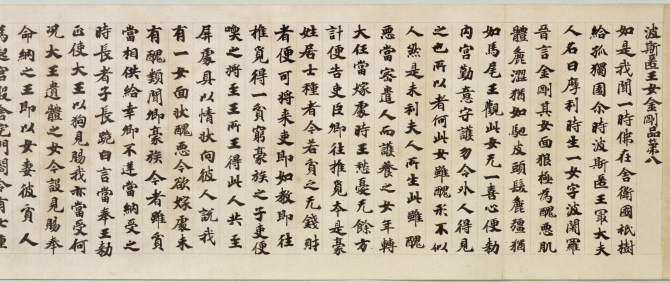 波斯匿王女金剛品第八
如是我聞一時佛在舍衛國祇樹
給孤獨園尒時波斯匿王最大夫
人名曰摩利時生一女字波闍羅
晉言金剛其女面狠極為醜惡肌
體麤澀猶如馳皮頭髮麤彊猶
如馬尾王觀此女无一喜心便勑
内宮勤意守護勿令外人得見
之也所以者何此女雖醜形不似
人然是末利夫人所生此雖醜
惡當密遣人而護養之女年轉
大任當嫁處時王愁憂无餘方
計便告吏臣卿往推覓本是豪
姓居士種者今若貧乏无錢財
者便可將來吏即如教即往
推覓得一貧窮豪族之子吏便
喚之將至王所王得此人共至
屏處具以情狀向彼人說我
有一女面狀醜惡今欲嫁處未
有酬類聞卿豪族今者雖貧
當相供給幸卿不逆當納受之
時長者子長跪白言當奉王勑
正使大王以狗見賜我亦當受何
況大王遺體之女今設見賜奉
命納之王即以女妻彼貧人
為起宮殿舍宅門閤令有七重